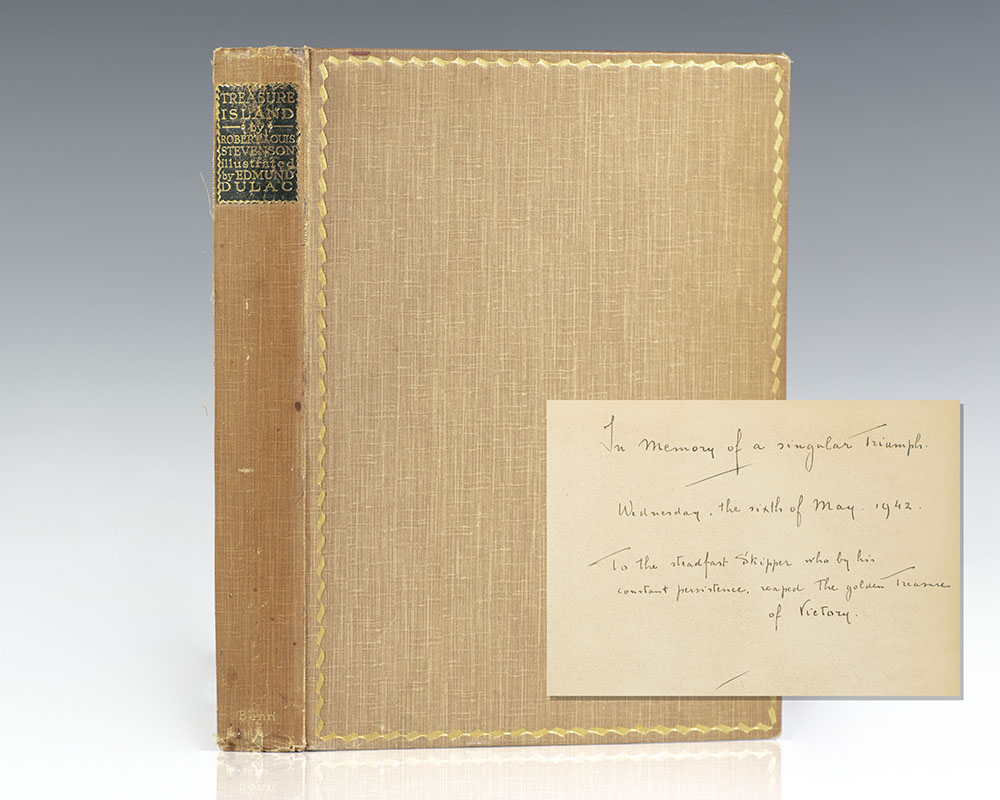 TREASURE
ISLAND
by
ROBERT LOUIS
STEVENSON
illustrated
by EDMUND
DULAC
Benn
In Memory of a singular Triumph.
Wednesday, the sixth of May. 1942.
To the steadfast Skipper who by his
constant persistence, reaped the golden Treasure
of Victory.